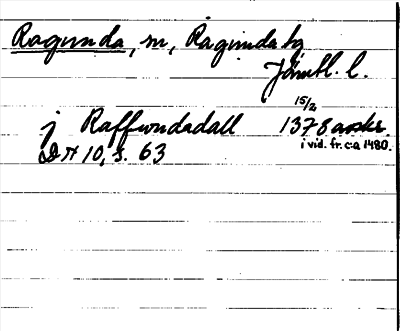 Ragunda, sn, Ragunda tg
Jämtl. l.
j Raffwndadall 15/2 1378 avskr.
i vid. fr. c:a 1480.
DN 10, s. 63